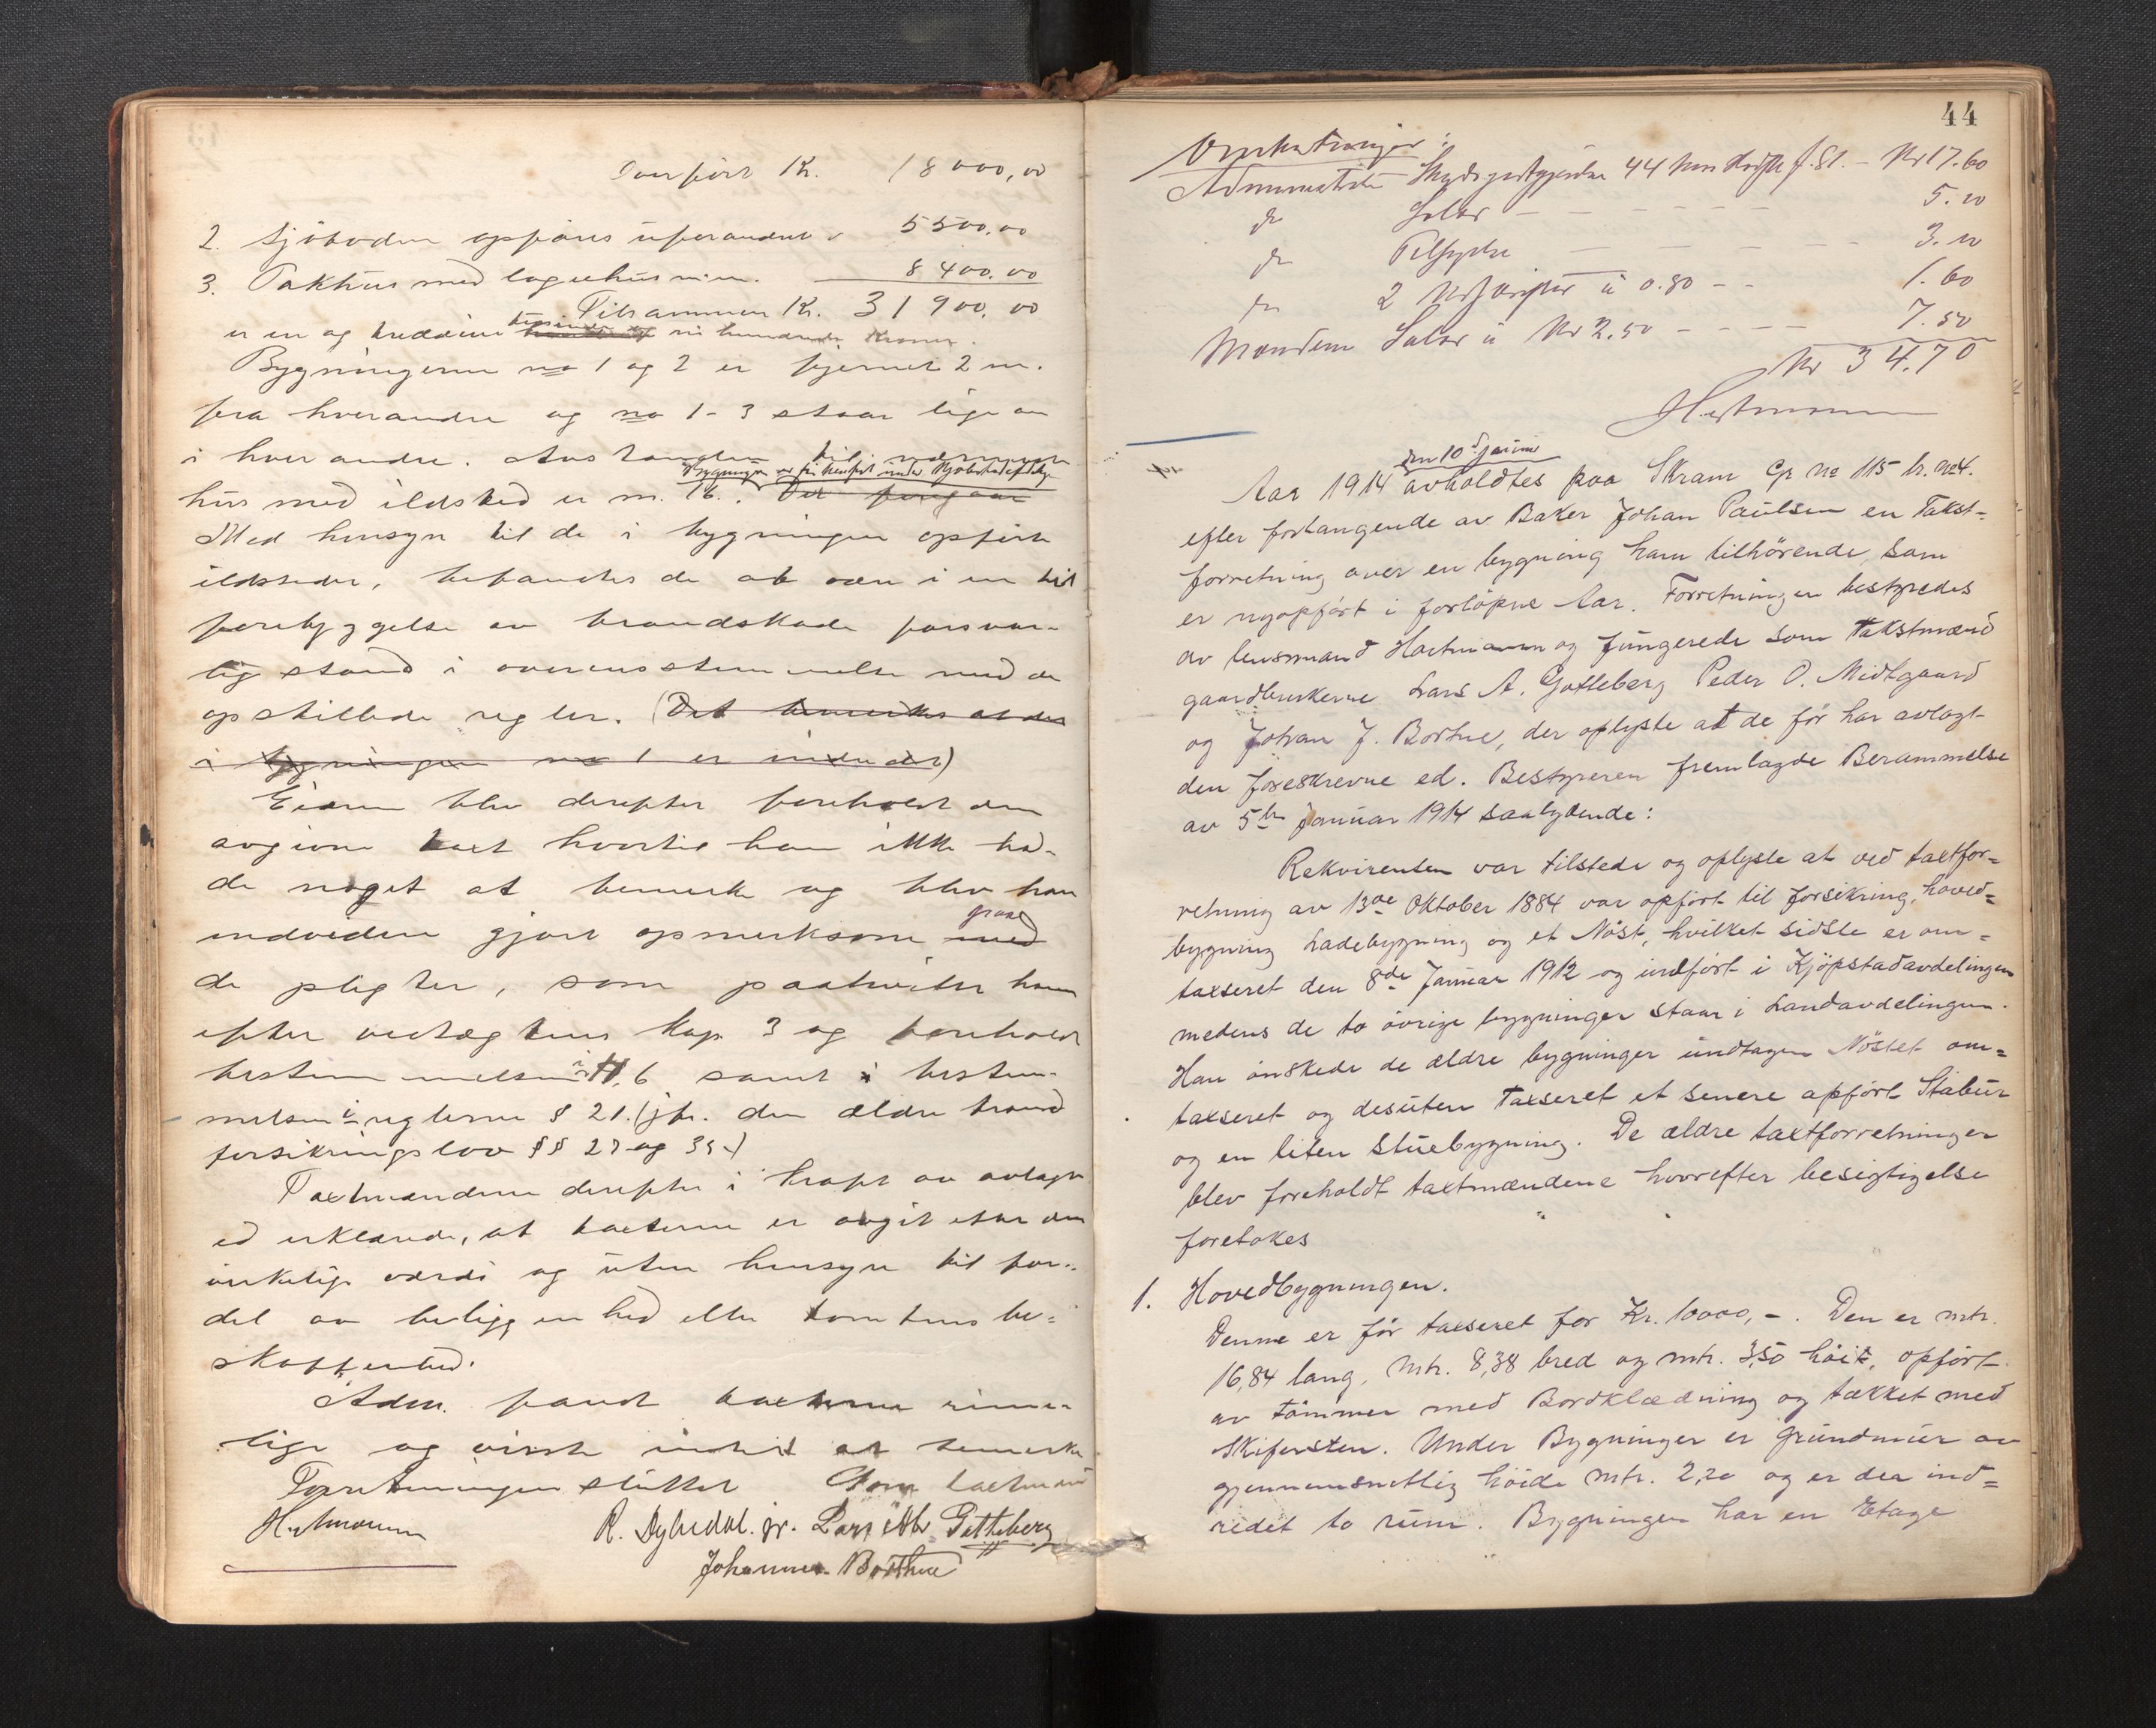 Overført Kr. 18000,00
2. Sjöboden opføres uforandret 5500.00
3. Pakhus med lagerhus m.m. 8400.00
Tilsammen Kr. 31900.00
er en og treddive tusinde ni hundrede Kroner.
Bygningerne no 1 og 2 er fjernet 2 m.
fra hverandre og no 1-3 staar lige an
i hverandre. Avstanden til nærmeste
Bygningen er før henført under Kjøbstadafdeling
hus med ildsted er m. 16. Det foregaar
Med hensyn til de i bygningen opførte
ildsteder, befandtes de at være i en til
forebyggelse av brandskade forsvar-
lig stand i overensstemmelse med de
opstillede regler. (Det bemerkes at der
i bygningen no 1 er inder det)
Eieren blev derefter foreholdt den
avgivne taxt hvortil han ikke had-
de noget at bemerke og blev han
endvidere gjort opmerksom paa
de pligter, som paahviler ham
efter vedtægtens Kap. 3 og foreholdt
bestemmelsen i H. 6 samt i bestem-
melsen i reglerne § 21. (jfr. den ældre brand
forsikringslov §§ 27 og 35.)
Taxtmændene derefter i kraft av avlagt
ed erklærede, at taxterne er avgit efter den
virkelige værdi og uten hensyn til for-
del av beliggenhed eller tomtens be-
skaffenhed.
Adm. fandt taxterne rime-
lige og visste intet at bemerke
Forretningen sluttet Som taxtmænd
Hartmann R. Dyhedal. jr. Lars Alb Götteberg
Johannes Börthue
44
Omkostninger:
Administrator Skydsgodtgjørelse 44 km - Kr 17.60
do Salær - - - - - 5.00
do - - - - 3.00
do 2 Udskrifter à 0.80 - - 1.60
Mændene Salær à Kr 2.50 - - - - 7.50
Kr 34.70
Hartmann
den 10d januar
Aar 1914 avholdtes paa Skram Gr no 115 br. no 4.
efter forlangende av Baker Johan Paulsen en Takst-
forretning over en bygning ham tilhörende, som
er nyopfört i forlöpne Aar. Forretningen bestyredes
av lensmand Hartmann og fungerede som Takstmænd
gaardbrukerne Lars A. Gotteberg Peder O. Midtgaard
og Johan J. Bortne, der oplyste at de för har avlagt
den foreskrevne ed. Bestyreren fremlagde Berammelse
av 5te Januar 1914 saalydende:
Rekvirenten var tilstede og oplyste at ved taxtfor=
retning av 13de Oktober 1884 var opfört til forsikring, hoved=
bygning Ladebygning og et Nöst, hvilket sidste er om=
taxseret den 8de Januar 1912 og indfört i Kjöpstadavdelingen
medens de to övrige bygninger staar i Landavdelingen.
Han önskede de ældre bygninger undtagen Nöstet om=
taxseret og desuten taxseret et senere opfört Stabur
og en liten Stuebygning. De ældre taxtforretninger
blev foreholdt taxtmændene hvorefter besigtigelse
foretokes
1. Hovedbygningen.
Denne er för taxseret for Kr. 10000,-. Den er mtr.
16,84 lang, mtr. 8,38 bred og mtr. 3,50 höit, opfört
av tömmer med Bordklædning og tækket med
Skifersten. Under Bygninger er grundmur av
gjennemsnitlig höide mtr. 2,20 og er der ind=
redet to rum. Bygningen har en Etage